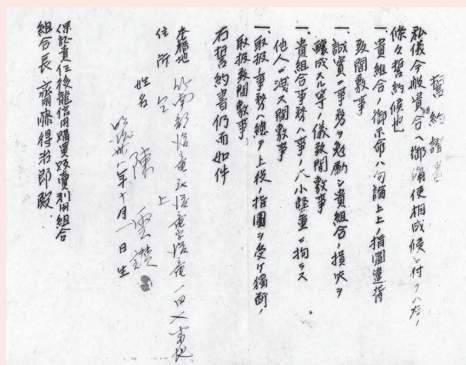 誓約證書
私儀今般貴組合ヘ御傭使相成候ニ付テハ左ノ
條々誓約候也
一、貴組合ノ御示命ハ勿論上上ノ指圖遵背
致間敷事
一、誠實ニ事務ヲ勉勵シ貴組合ノ損失ヲ
釀成スル等ノ儀致間敷事
一、貴組合事務ハ事ノ大小輕重ニ拘ラス
他人ニ洩ス間敷事
一、取扱事務ハ總テ上役ノ指圖ヲ受ケ獨斷ノ
取扱致間敷事
右誓約書仍而如件
本籍地
住所 仝 上
姓名 陳雲
八年十月一日生
保証責任後龍信用購買販賣利用組合
組合長 齋藤得治郎殿